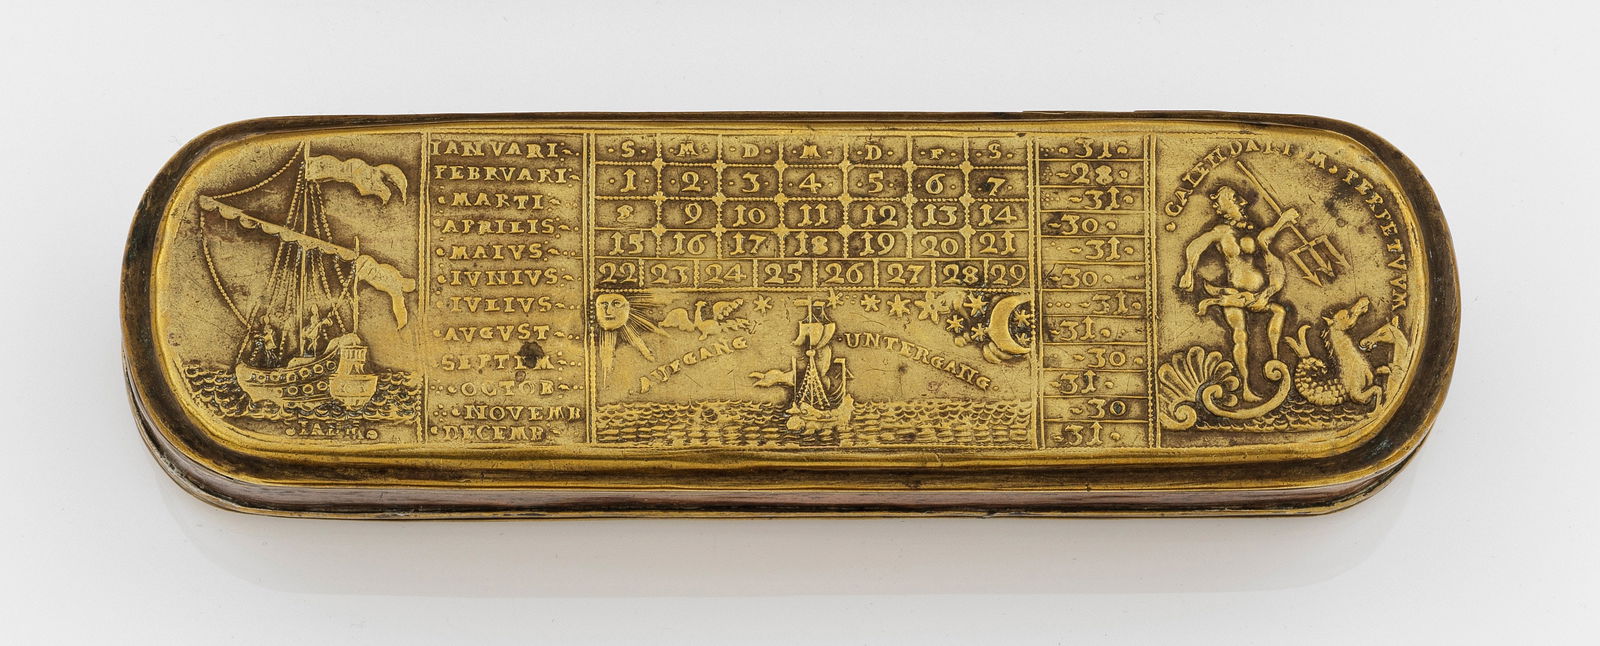 IANVARI
FEBRVARI
MARTI
APRILIS
MAIVS
IVNIVS
IVLIVS
AVGVST
SEPTEM
OCTOB
NOVEMB
DECEMB
S. M. D. M. D. F. S.
1 2 3 4 5 6 7
8 9 10 11 12 13 14
15 16 17 18 19 20 21
22 23 24 25 26 27 28 29
AUFGANG
UNTERGANG
31
28
31
30
31
30
31
31
30
31
30
31
CALENDARIUM. PERPETVVM